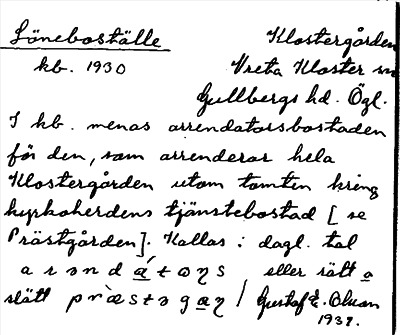 Löneboställe Klostergården
kb. 1930 Vreta Kloster sn
Gullbergs hd. Ögl.
I kb. menas arrendatorsbostaden
för den, som arrenderar hela
Klostergården utom tomten kring
kyrkoherdens tjänstebostad [se
Prästgården]. Kallas i dagl. tal
eller rätt o
slätt Gustaf E. Olsson
1937.